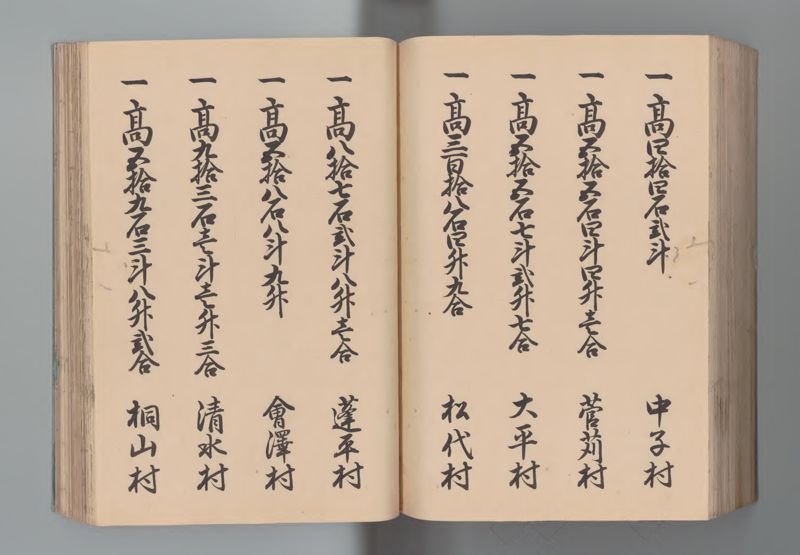 一 髙四拾四石弐斗 中子村
一 髙五拾五石四斗四升壱合 菅刈村
一 髙五拾五石七斗弐升七合 大平村
一 髙三百拾八石四升九合 松代村
一 髙八拾七石弐斗八升壱合 蓬平村
一 髙五拾八石八斗九升 會澤村
一 髙九拾三石壱斗壱升三合 清水村
一 髙五拾九石三斗八升弐合 桐山村